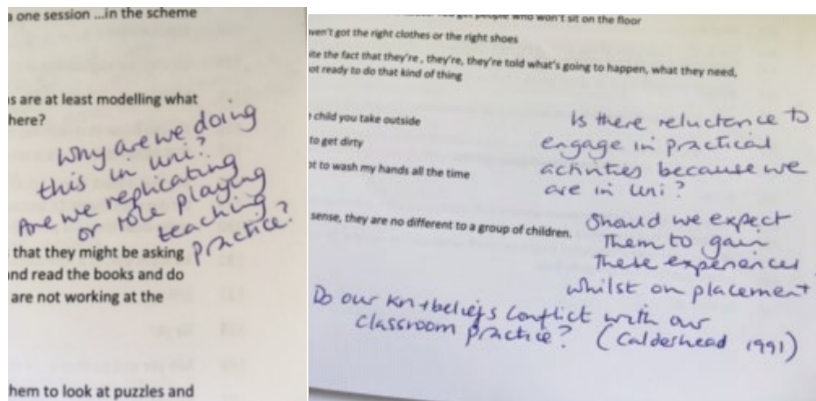 a one session ...in the scheme
s are at least modelling what
here?
Why are we doing
this in uni?
Are we replicating
or role playing
teaching
practice?
that they might be asking
nd read the books and do
are not working at the
hem to look at puzzles and
who won't sit on the floor
ven't got the right clothes or the right shoes
ite the fact that they're , they're, they're told what's going to happen, what they need,
ot ready to do that kind of thing
child you take outside
to get dirty
ot to wash my hands all the time
sense, they are no different to a group of children.
Is there reluctance to
engage in practical
activities because we
are in uni?
Should we expect
them to gain
these experiences
whilst on placement
Do our kn+beliefs conflict with our
classroom practice? (Calderhead 1991)